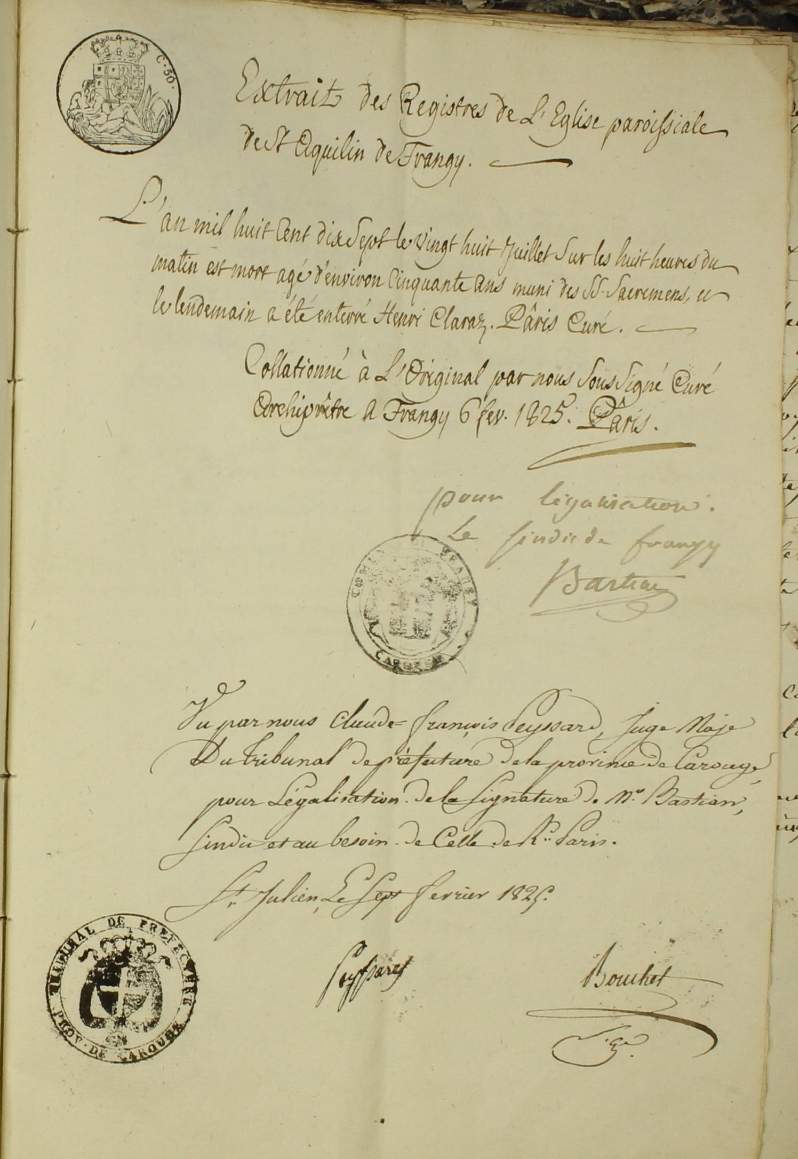 C. 50.
Extrait des Registres de L'Eglise paroissiale
de St Aquilin de Frangy.
L'an mil huit Cent dix Sept le Vingt huit Juillet Sur les huit heures du
matin est mort agé d'environ Cinquante Ans muni des SS. Sacremens, et
le lendemain a été enterré Henri Claraz. Pâris Curé.
Collationné à L'Original par nous Sous Signé Curé
Archiprêtre à Frangy 6 fev. 1825. Pâris.
pour légalisation.
Le sindic de frangy
Bastian
CAROUGE
Vu par nous Claude-françois Peyssard, Juge Maje
Du Tribunal de préfecture de la province de Carouge,
pour Légalisation de la Signature de Mr. Bastian,
Sindic et au besoin de Celle de Rd. Paris.
St. Julien, Le Sept fevrier 1825.
TRIBUNAL DE PREFECTURE
PROV. DE CAROUGE
Peyssard
Bouchet